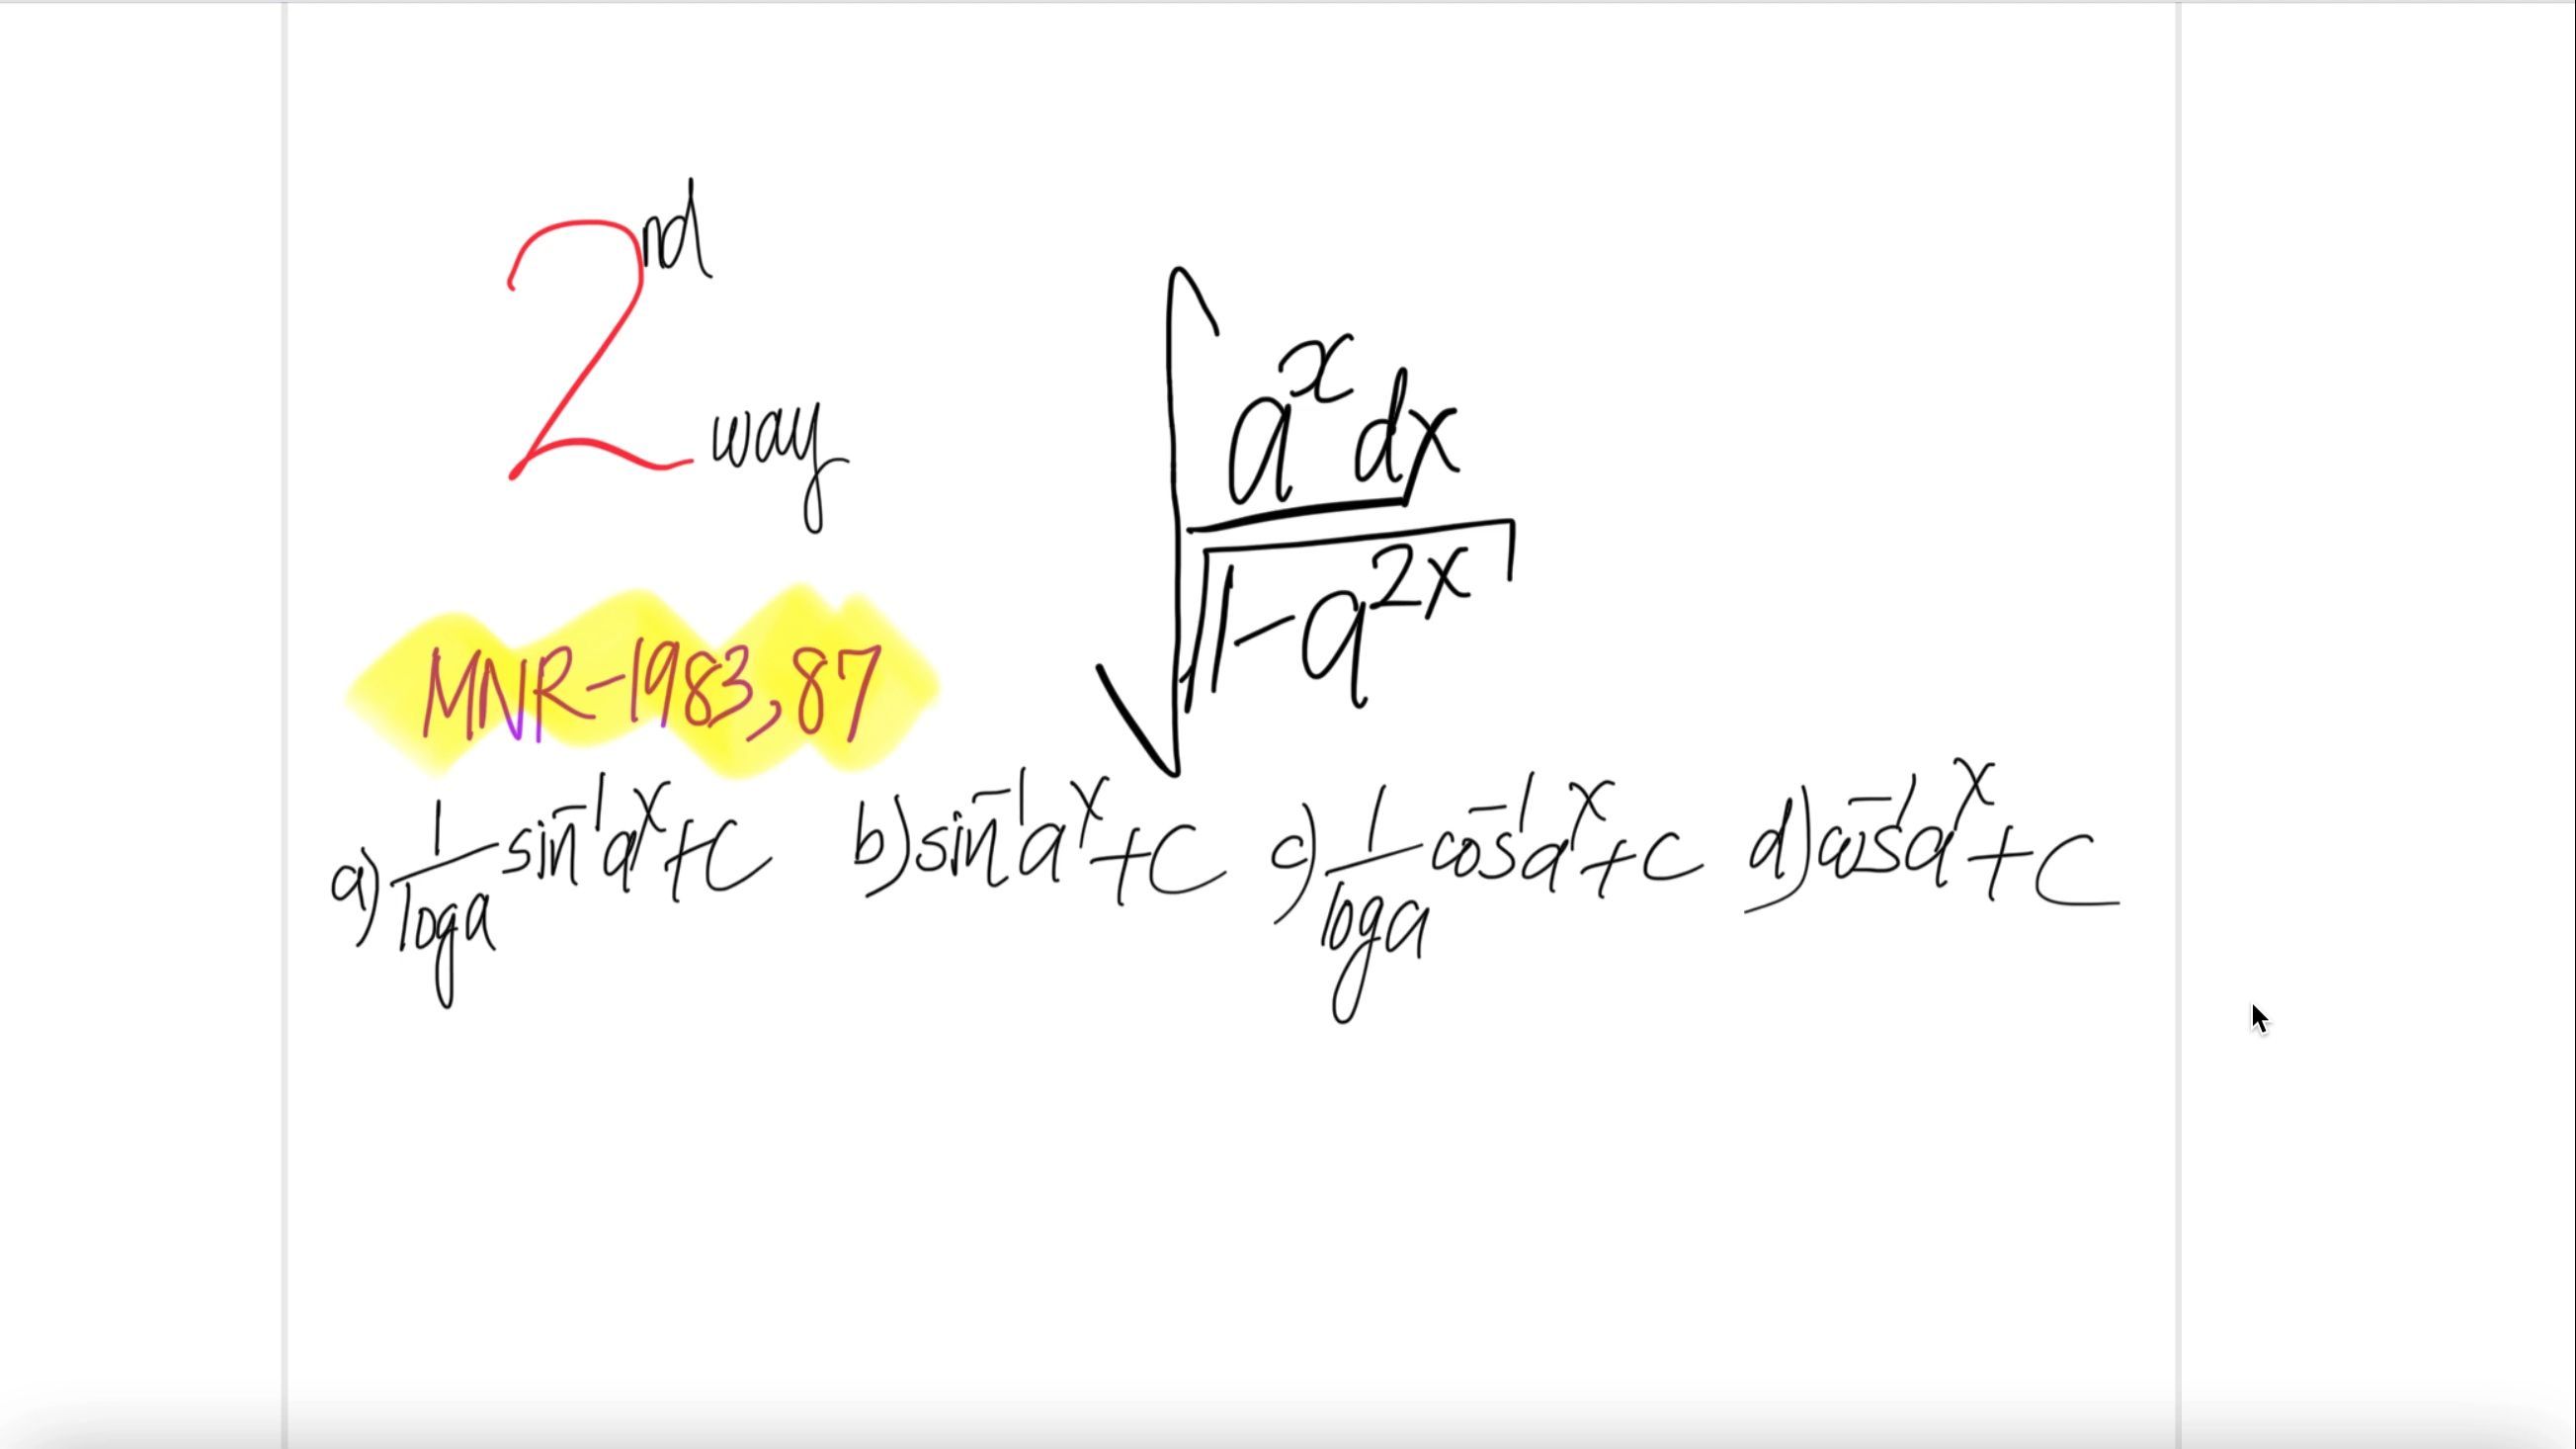 2nd way
∫ a^x dx / √(1-a^2x)
MNR-1983,87
a) 1/loga sin^-1 a^x+C b) sin^-1 a^x+C c) 1/loga cos^-1 a^x+C d) cos^-1 a^x+C